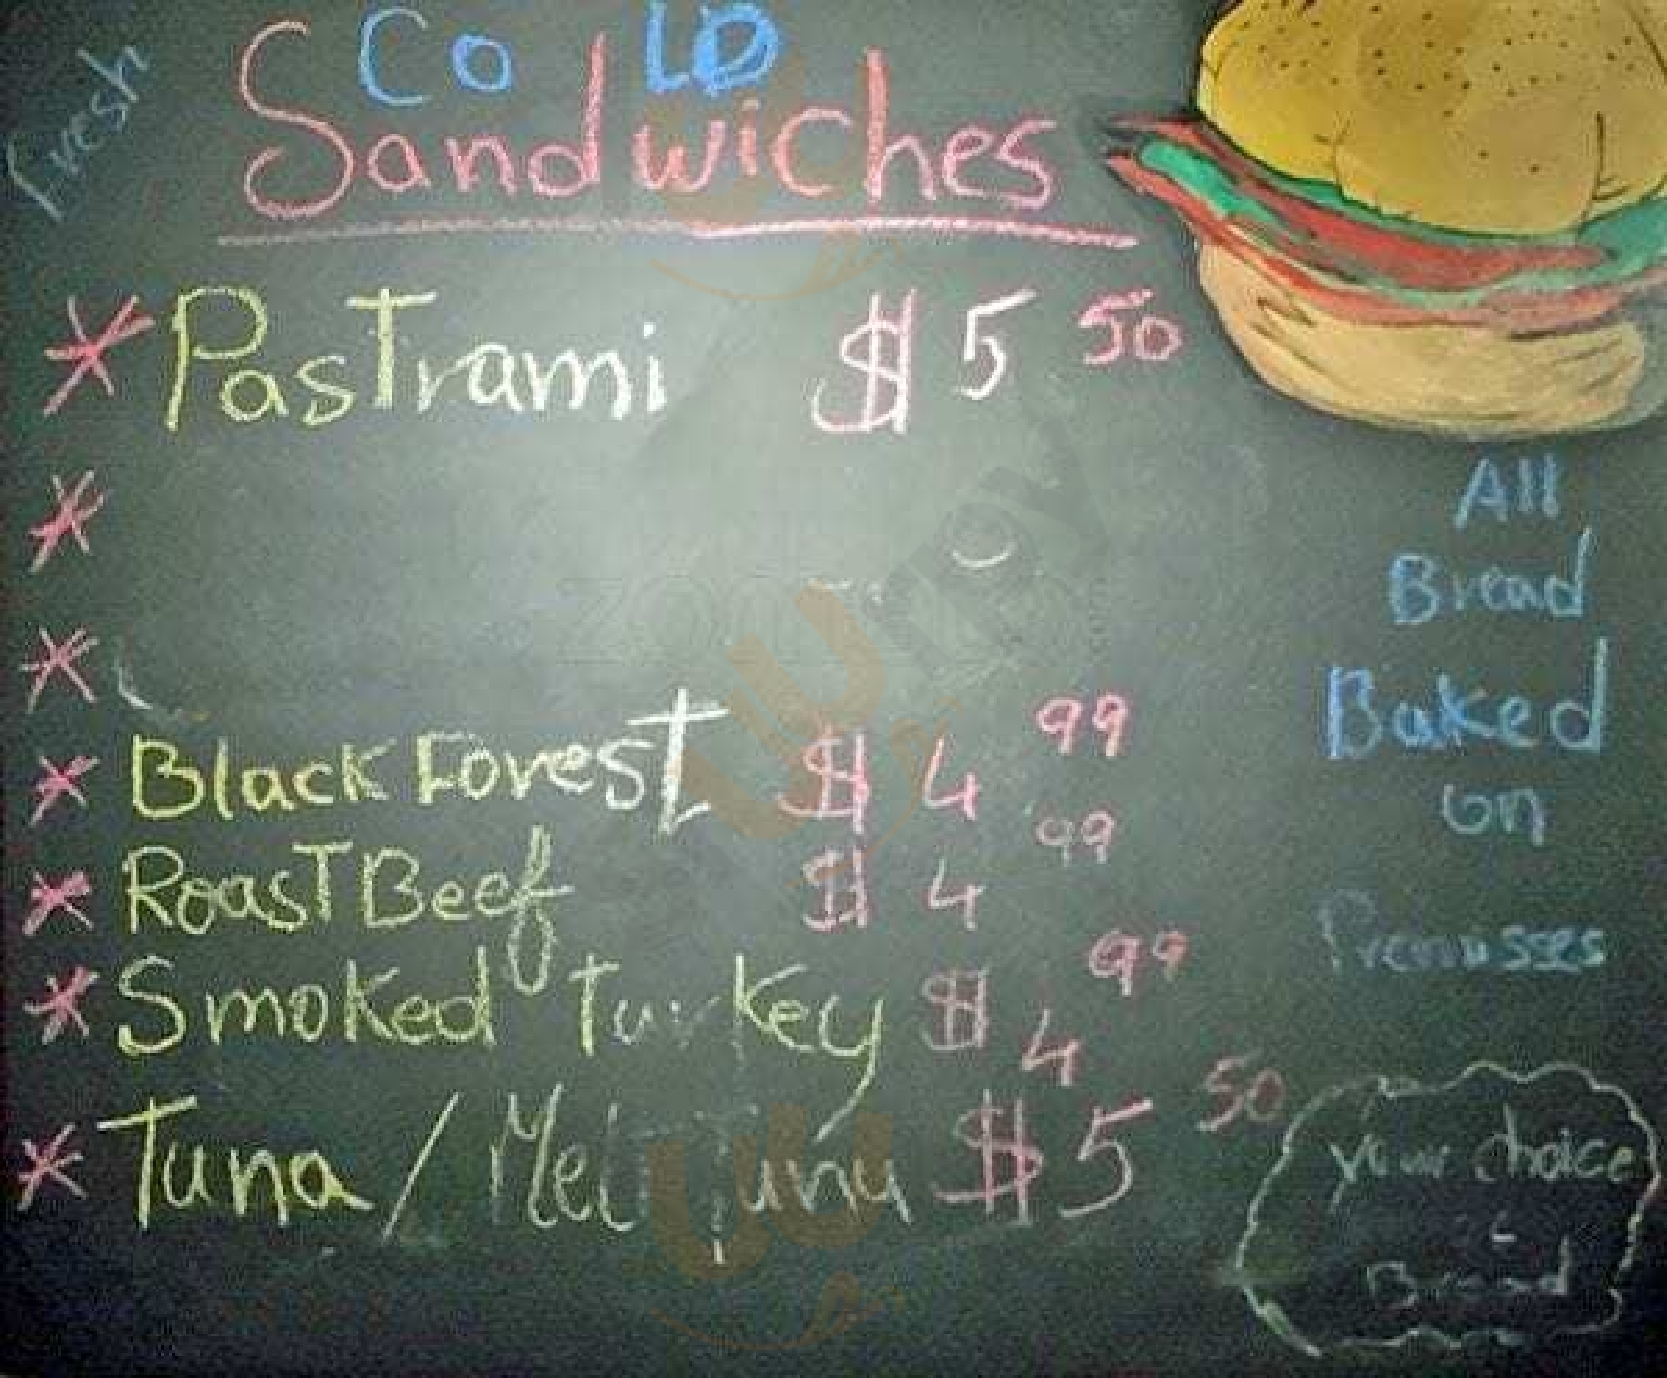 Fresh
Co LD
Sandwiches
* PasTrami $5 50
*
*
* Black Forest $4 99
* RoasT Beef $4 99
* Smoked Turkey $4 99
* Tuna / Melt Tuna $5 50
All
Bread
Baked
on
Premisses
your choice
Bread